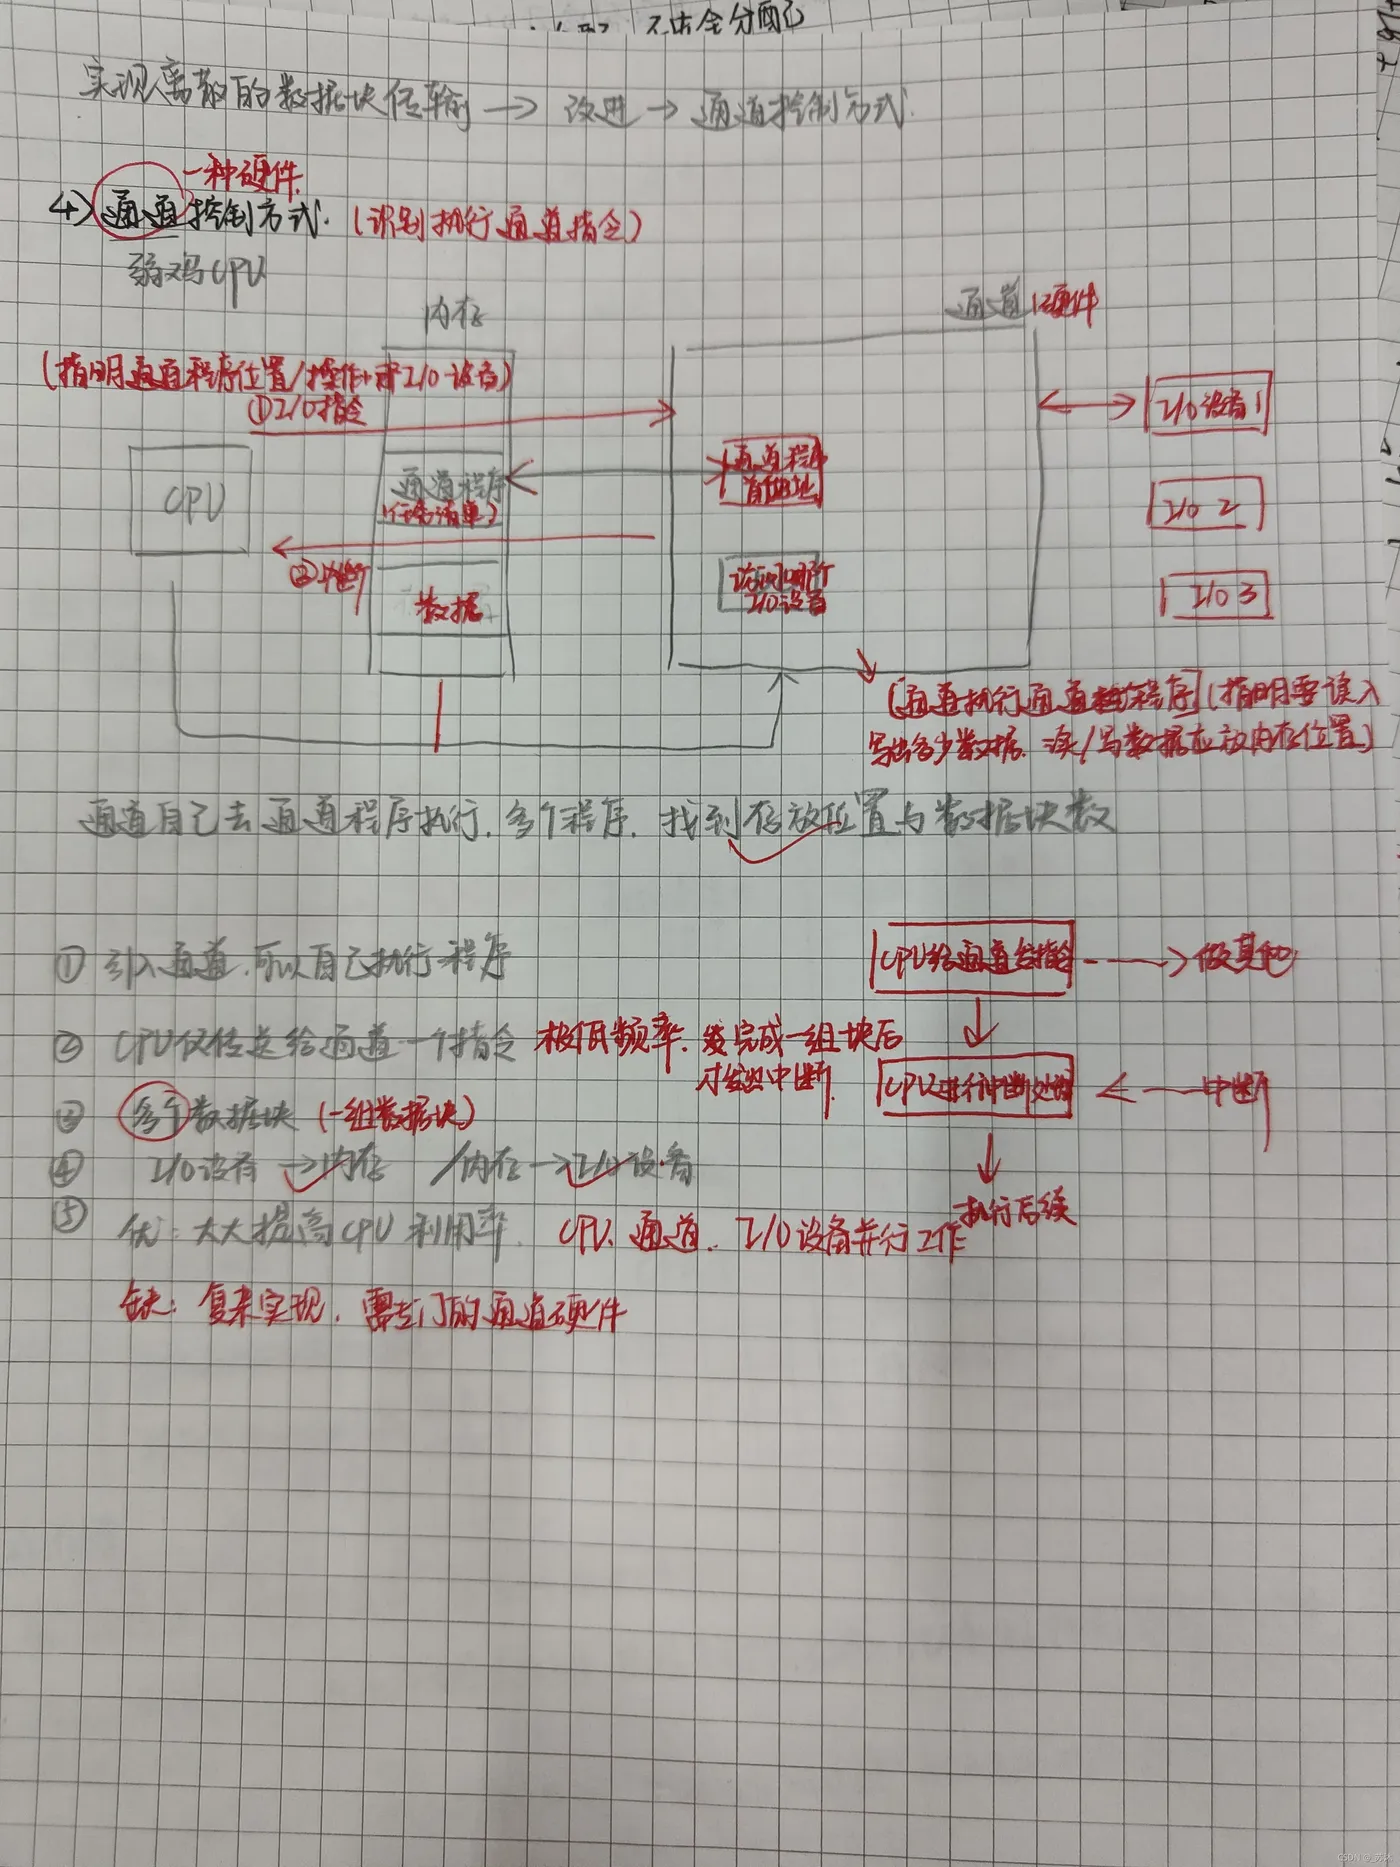 不连续分配
实现离散的数据块传输 → 改进 → 通道控制方式.
一种硬件
4) 通道控制方式. (识别执行通道指令)
弱鸡CPU
内存
通道:硬件
(指明通道程序位置/操作+哪I/O设备)
①I/O指令
I/O设备1
CPU
通道程序
(任务清单)
通道程序
首地址
I/O 2
②中断
数据
访问哪个
I/O设备
I/O 3
[通道执行通道程序](指明要读入
写出多少数据. 读/写数据应放内存位置)
通道自己去通道程序执行. 多个程序. 找到存放位置与数据块数
① 引入通道. 可以自己执行程序
CPU给通道发指令 → 做其他
② CPU仅传送给通道一个指令 极低频率. 完成一组块后
才发出中断.
CPU进行中断处理 ← 中断
③ 多个数据块 (一组数据块)
④ I/O设备 → 内存 / 内存 → I/O设备
执行后续
⑤ 优: 大大提高CPU利用率. CPU、通道、I/O设备并行工作
缺: 复杂实现. 需专门的通道硬件